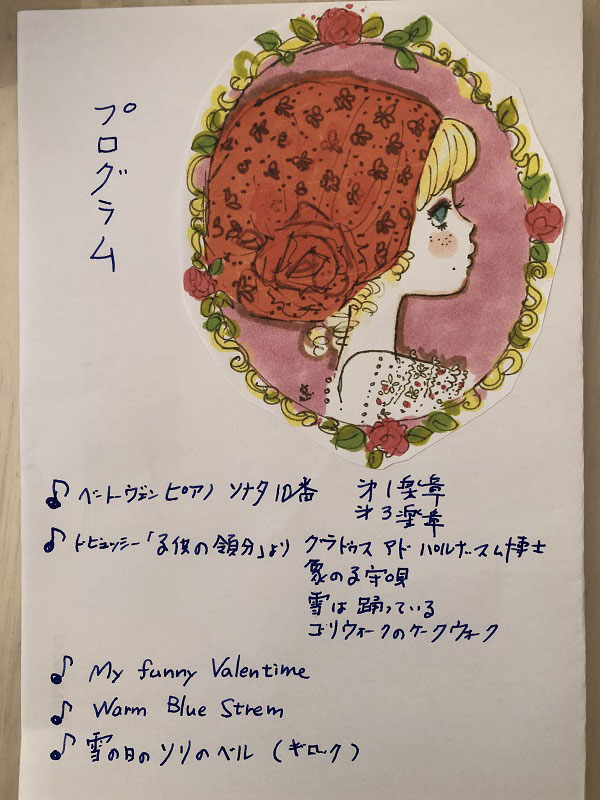 プログラム
♪ ベートーヴェン ピアノ ソナタ 10番 才1楽章
才3楽章
♪ ドビュッシー「子供の領分」より グラドゥス アド パルナッスム博士
象の子守唄
雪は踊っている
ゴリウォークのケークウォーク
♪ My funny Valentime
♪ Warm Blue Strem
♪ 雪の日のソリのベル (ギロック)